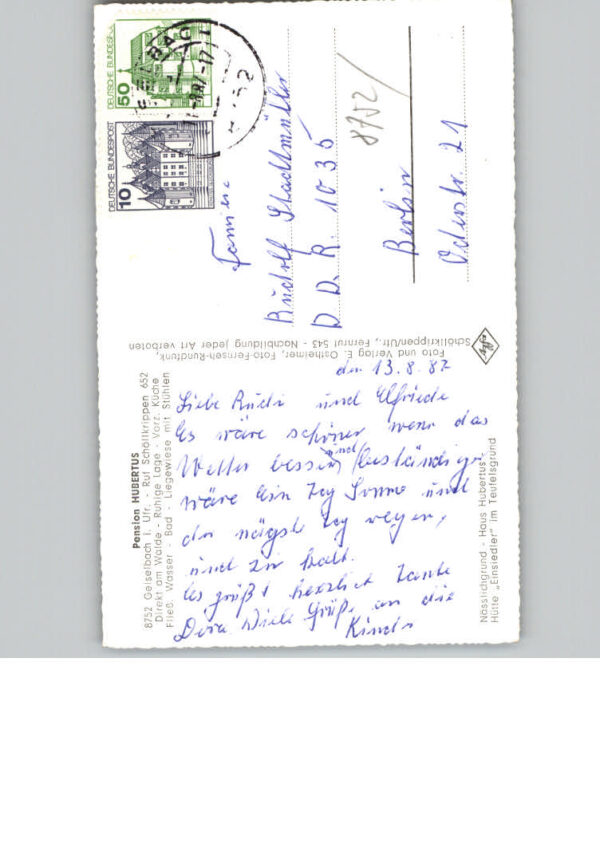 DEUTSCHE BUNDESPOST
50
DEUTSCHE BUNDESPOST
10
8752
8752
Familie
Rudolf Stadtmüller
D. D. R. 1035
Berlin
Oderstr. 21
Foto und Verlag E. Ostheimer, Foto-Fernseh-Rundfunk,
Schöllkrippen/Ufr., Fernruf 543 - Nachbildung jeder Art verboten
Agfa
Pension HUBERTUS
8752 Geiselbach i. Ufr. - Ruf Schöllkrippen 652
Direkt am Walde - Ruhige Lage - Vorz. Küche
Fließ. Wasser - Bad - Liegewiese mit Stühlen
den 13.8.87
Liebe Rudi und Elfriede
Es wäre schöner wenn das
Wetter besser und beständiger
wäre Ein Tag Sonne und
der nägste Tag regen,
und zu kalt.
Es grüßt herzlich Tante
Dora Viele Grüße an die
Kinder
Nässlichgrund - Haus Hubertus"
Hütte „Einsiedler" im Teufelsgrund